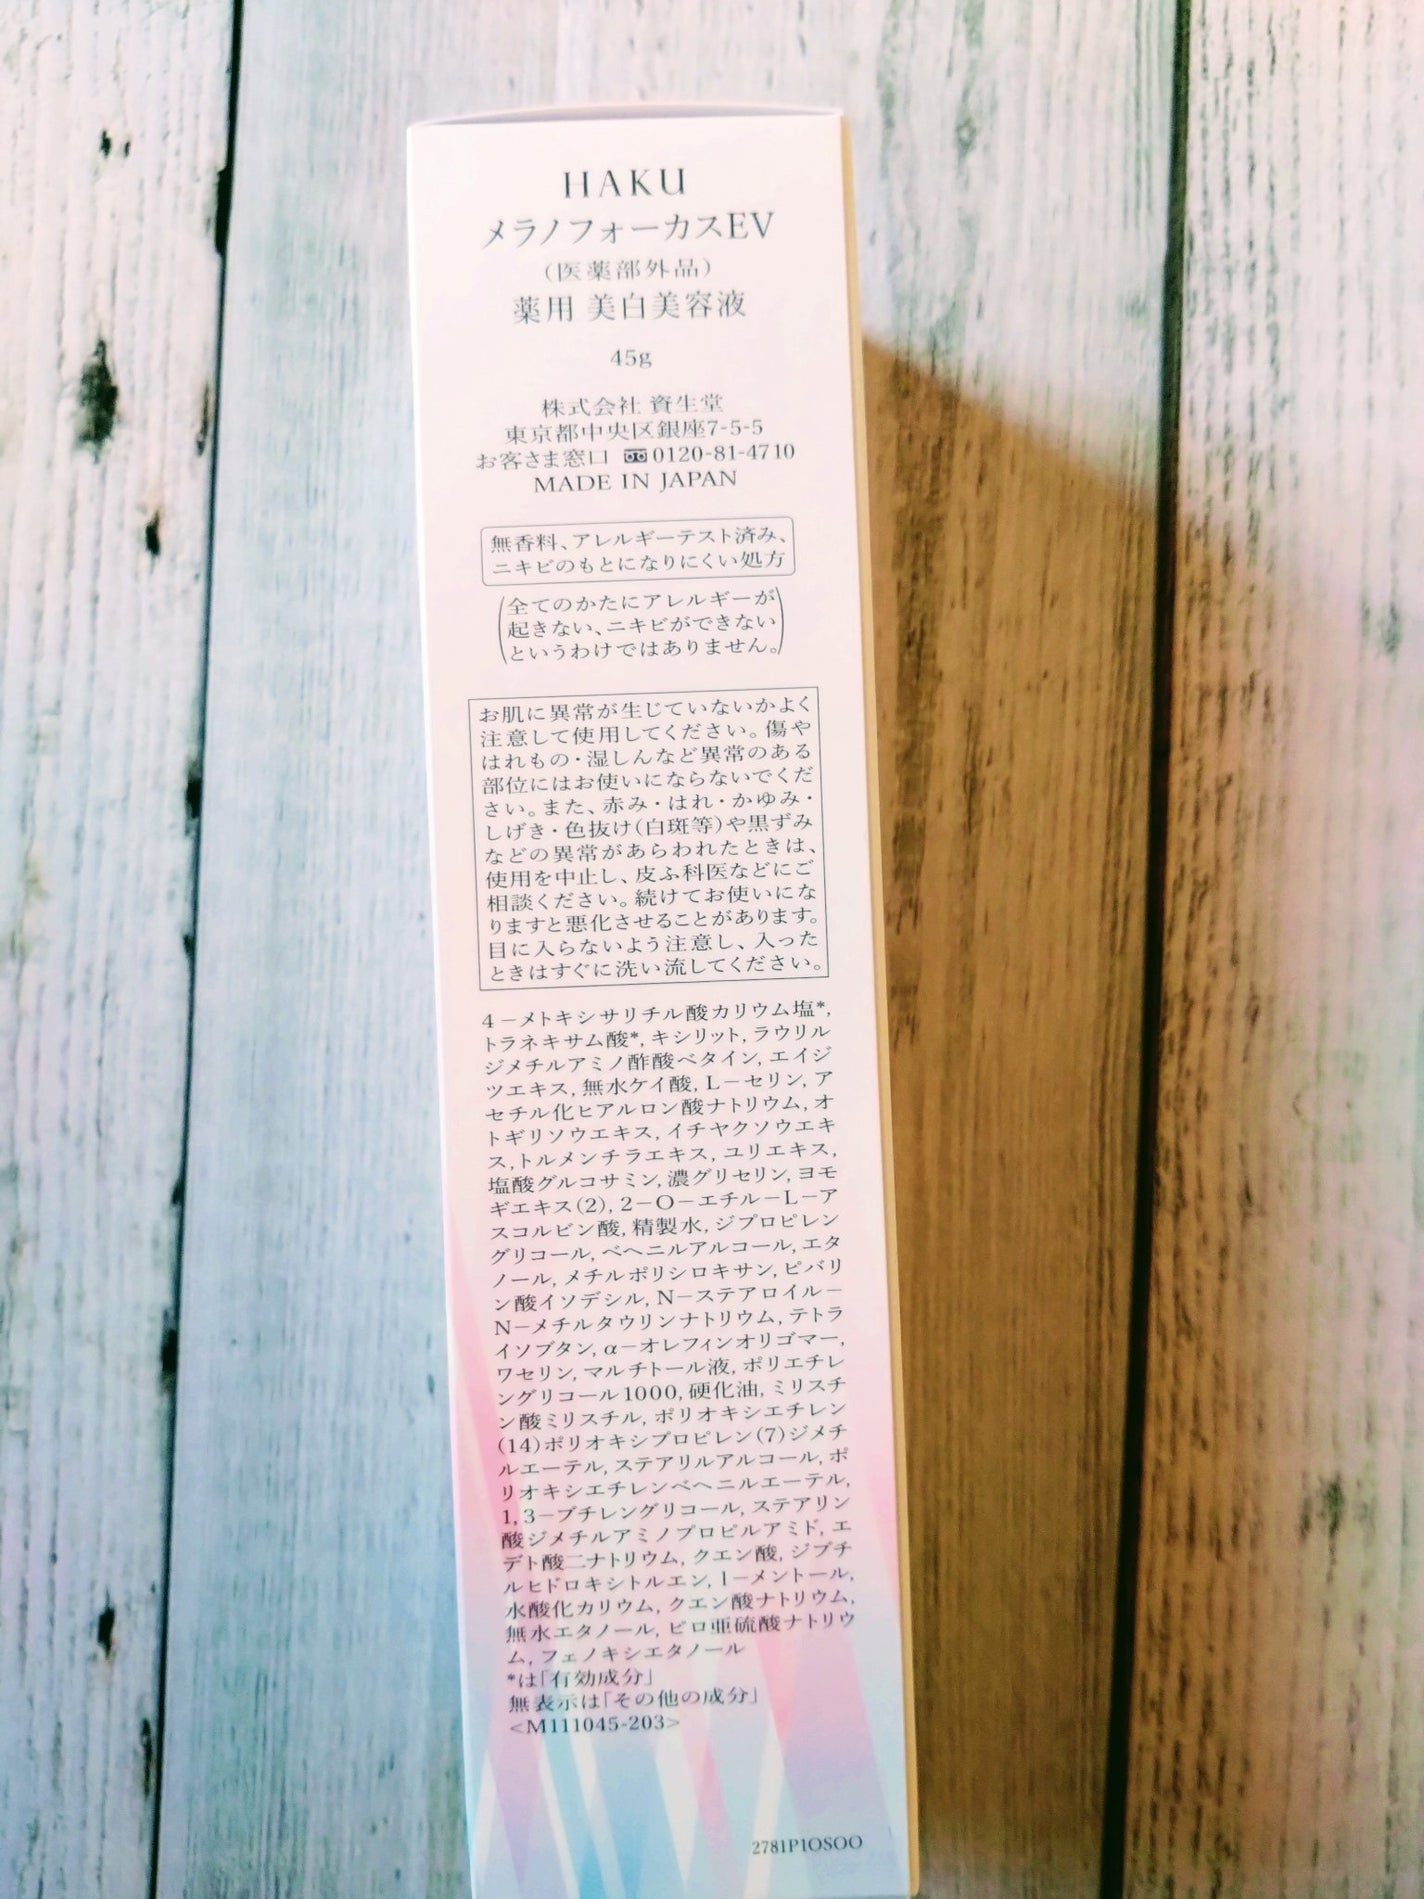 HAKU
メラノフォーカスEV
(医薬部外品)
薬用 美白美容液
45g
株式会社 資生堂
東京都中央区銀座7-5-5
お客さま窓口 0120-81-4710
MADE IN JAPAN
無香料、アレルギーテスト済み、
ニキビのもとになりにくい処方
(全てのかたにアレルギーが
起きない、ニキビができない
というわけではありません。)
お肌に異常が生じていないかよく
注意して使用してください。傷や
はれもの・湿しんなど異常のある
部位にはお使いにならないでくだ
さい。また、赤み・はれ・かゆみ・
しげき・色抜け(白斑等)や黒ずみ
などの異常があらわれたときは、
使用を中止し、皮ふ科医などにご
相談ください。続けてお使いにな
りますと悪化させることがあります。
目に入らないよう注意し、入った
ときはすぐに洗い流してください。
4-メトキシサリチル酸カリウム塩*,
トラネキサム酸*, キシリット, ラウリル
ジメチルアミノ酢酸ベタイン, エイジ
ツエキス, 無水ケイ酸, L-セリン, ア
セチル化ヒアルロン酸ナトリウム, オ
トギリソウエキス, イチヤクソウエキ
ス, トルメンチラエキス, ユリエキス,
塩酸グルコサミン, 濃グリセリン, ヨモ
ギエキス(2), 2-O-エチル-L-ア
スコルビン酸, 精製水, ジプロピレン
グリコール, ベヘニルアルコール, エタ
ノール, メチルポリシロキサン, ピバリ
ン酸イソデシル, N-ステアロイル-
N-メチルタウリンナトリウム, テトラ
イソブタン, α-オレフィンオリゴマー,
ワセリン, マルチトール液, ポリエチレ
ングリコール1000, 硬化油, ミリスチ
ン酸ミリスチル, ポリオキシエチレン
(14)ポリオキシプロピレン(7)ジメチ
ルエーテル, ステアリルアルコール, ポ
リオキシエチレンベヘニルエーテル,
1, 3-ブチレングリコール, ステアリン
酸ジメチルアミノプロピルアミド, エ
デト酸二ナトリウム, クエン酸, ジブチ
ルヒドロキシトルエン, l-メントール,
水酸化カリウム, クエン酸ナトリウム,
無水エタノール, ピロ亜硫酸ナトリウ
ム, フェノキシエタノール
*は「有効成分」
無表示は「その他の成分」
<M111045-203>
2781P1OSOO